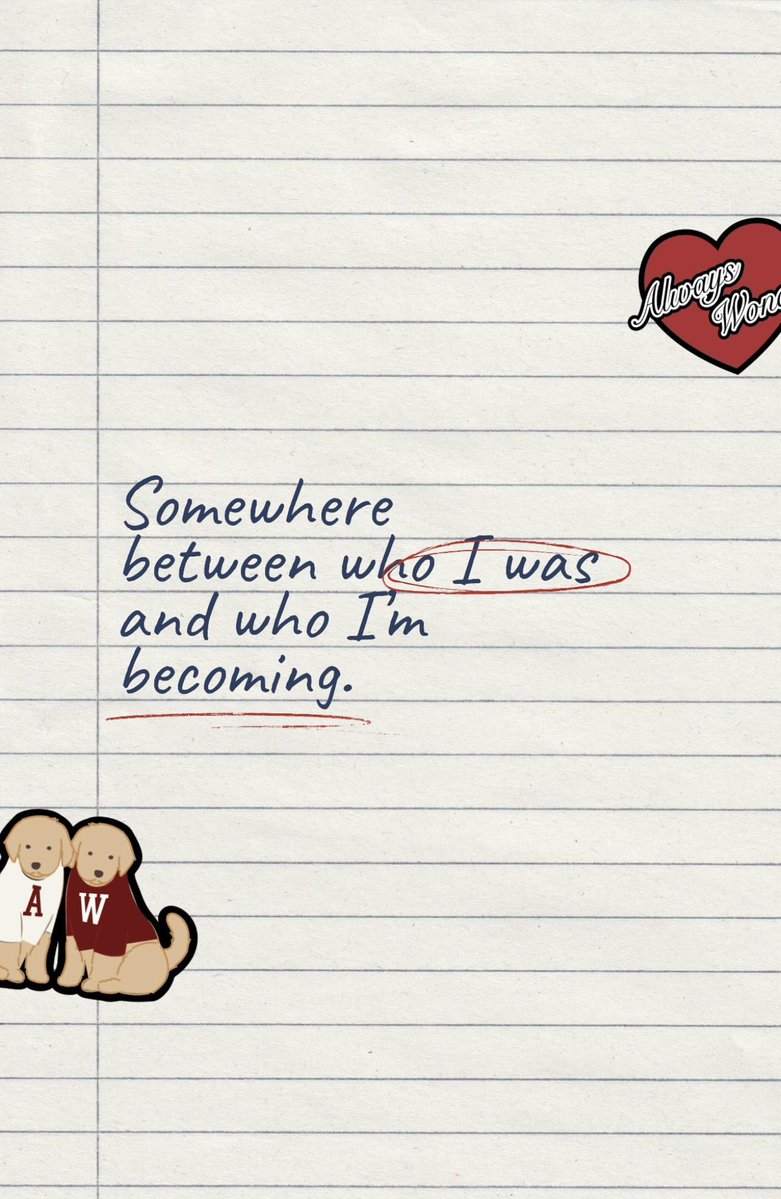 Always
Somewhere
between who I was
and who I'm
becoming.
A W